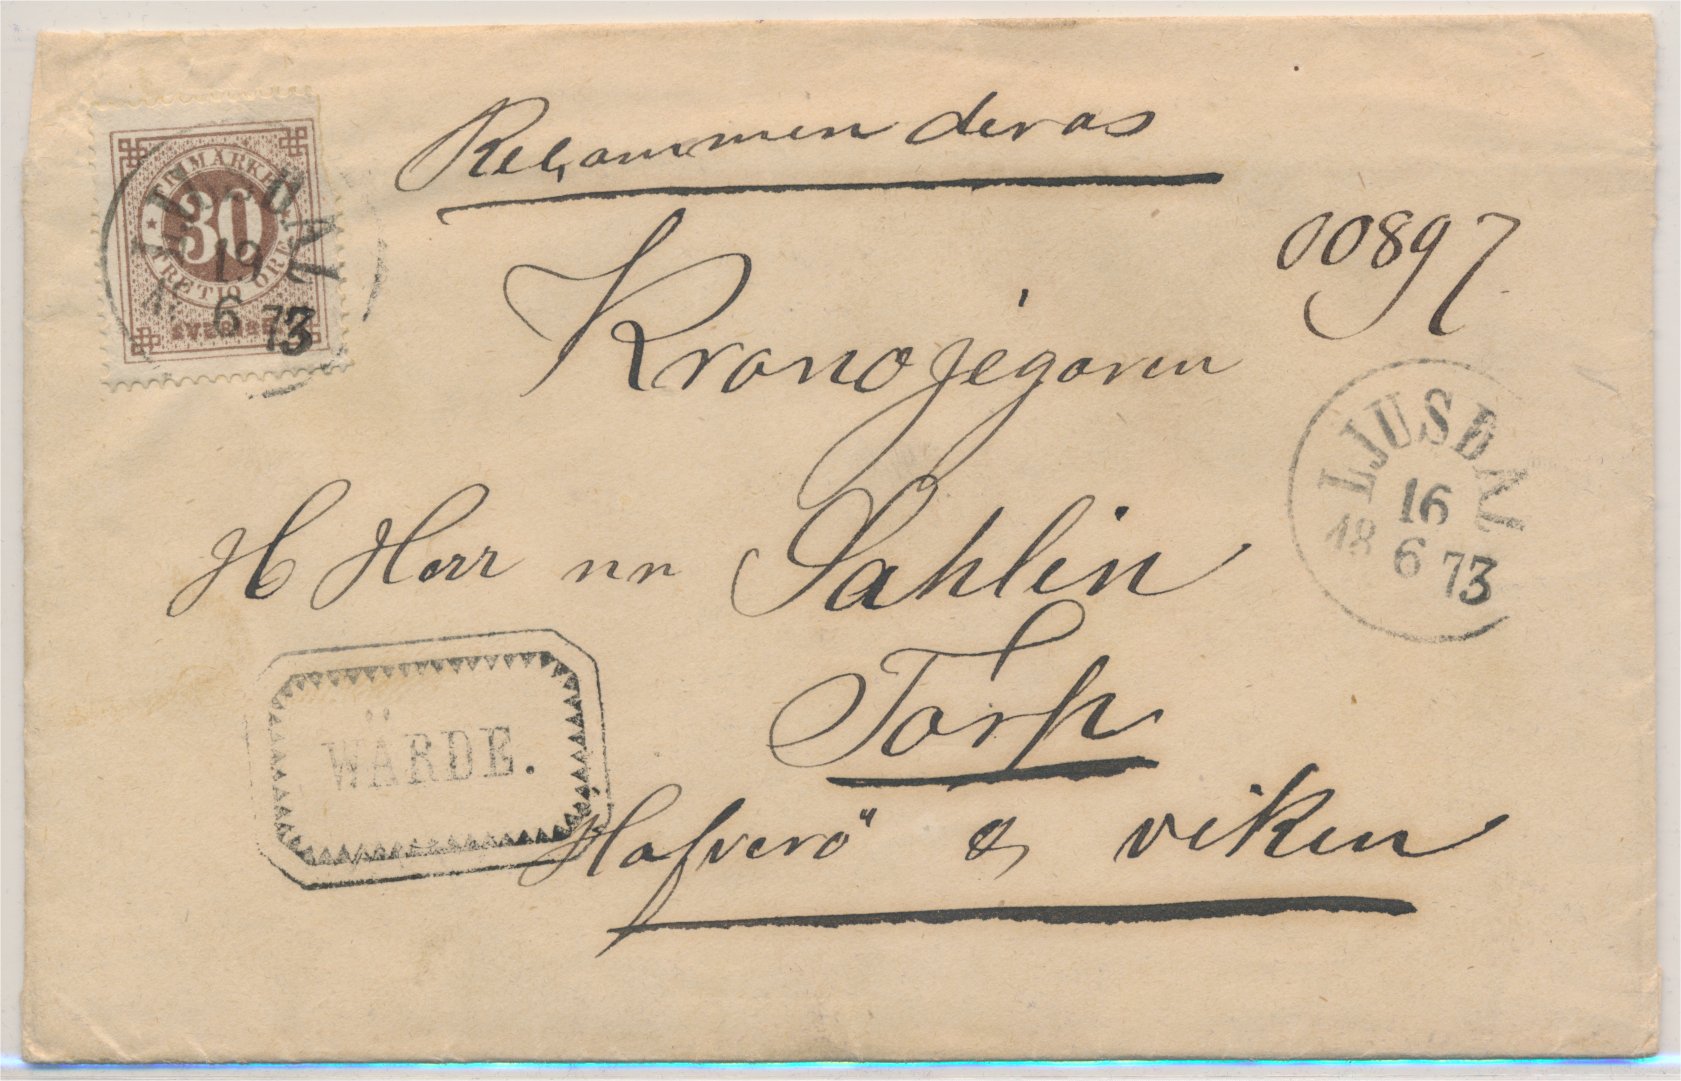 FRIMÄRKE
30
TRETIO ÖRE
SVERIGE
19
6 73
Rekommenderas
00897
Kronojegaren
LJUSDAL
16
18 6 73
H Herr nn Sahlin
Torp
WÄRDE.
Hafverö & viken